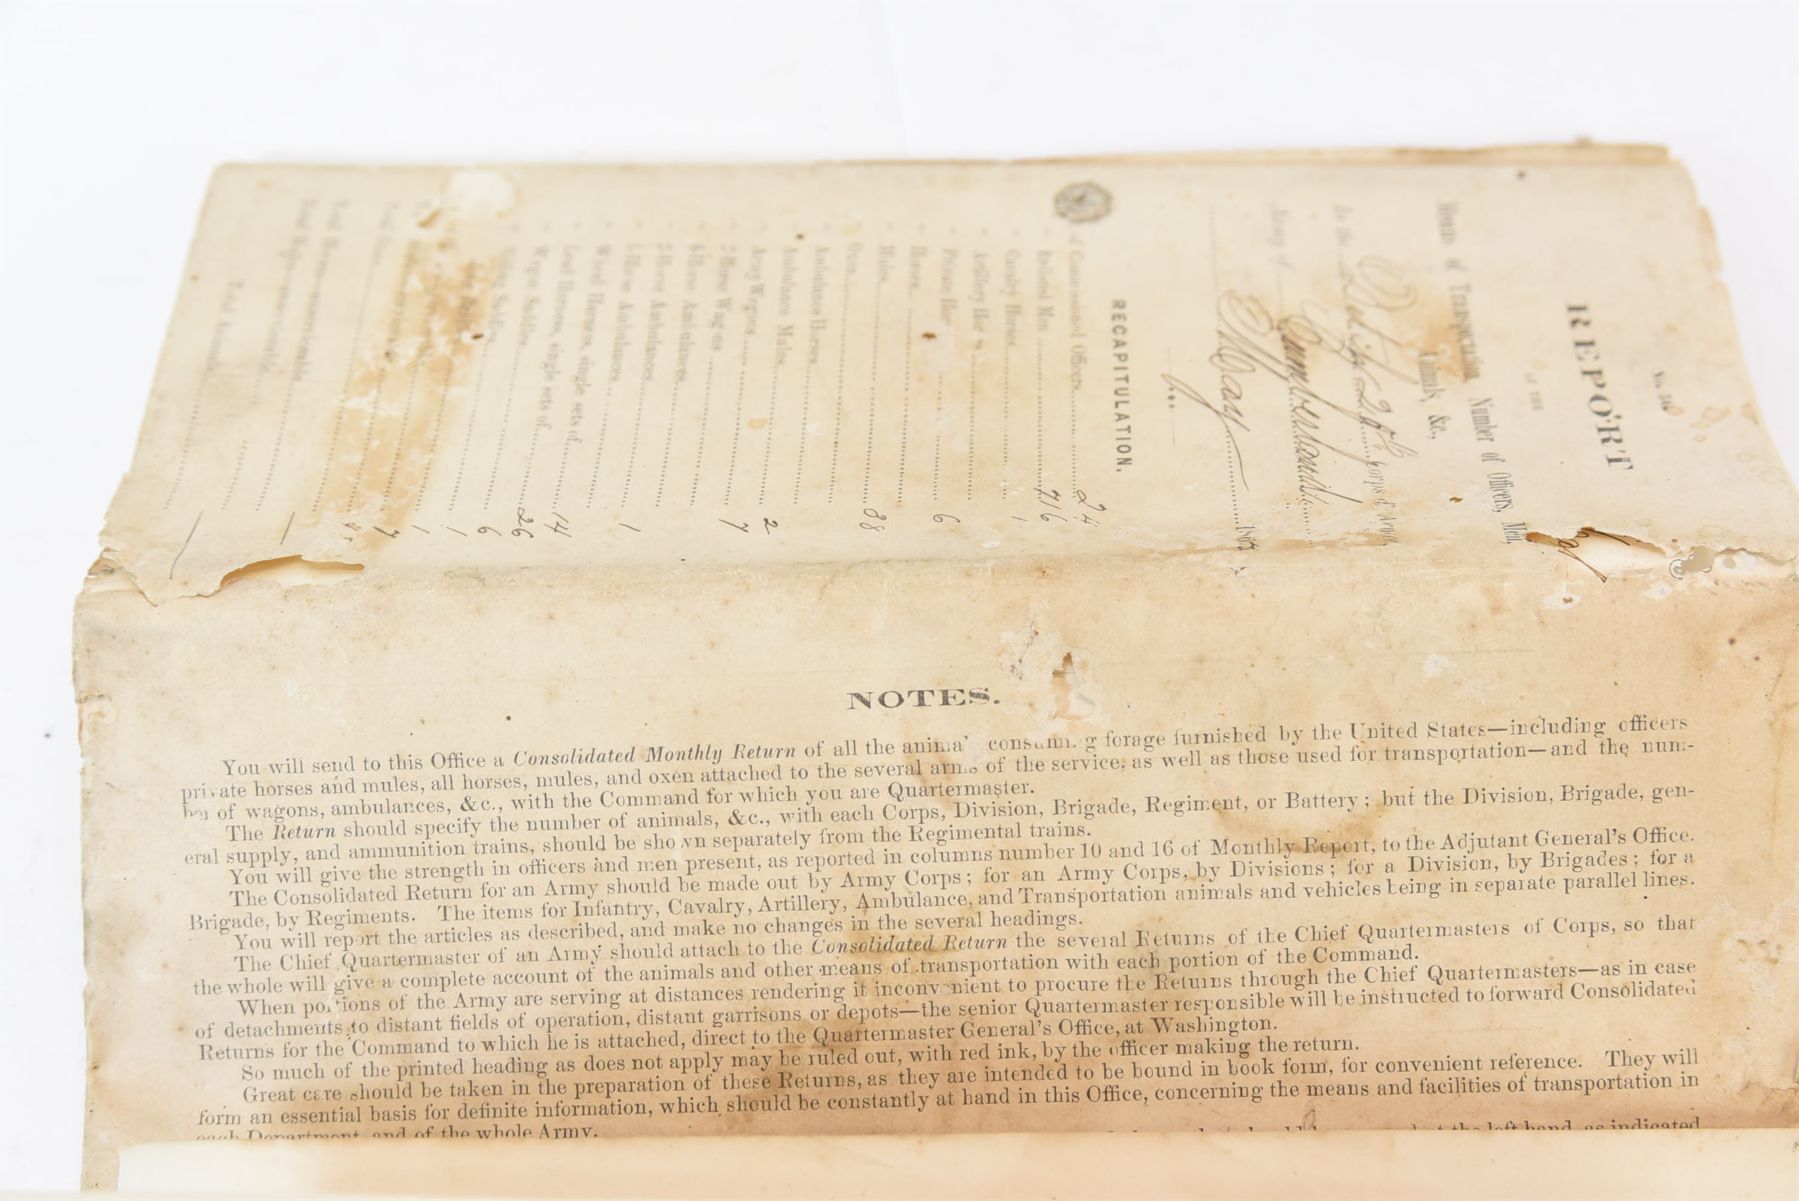 REPORT
OF THE
Means of Transportation, Number of Officers, Men,
Animals, &c.,
In the
Corps
Army of Cumberland
May 186
RECAPITULATION.
Commissioned Officers 24
" Enlisted Men 716
" Cavalry Horses 1
" Artillery Horses
" Private Horses 6
" Horses
" Mules 38
" Oxen
" Ambulance Horses
" Ambulance Mules 2
" Army Wagons 7
" 2-Horse Wagons
" 4-Horse Ambulances
" 2-Horse Ambulances
" 1-Horse Ambulances 1
" Wheel Harness, single sets of
" Lead Harness, single sets of 14
" Wagon Saddles 26
" Riding Saddles 6
Total Horses—unserviceable
Total Mules—unserviceable
Total Animals
NOTES.
You will send to this Office a Consolidated Monthly Return of all the anima consuming forage furnished by the United States—including officers
private horses and mules, all horses, mules, and oxen attached to the several arms of the service, as well as those used for transportation—and the num-
ber of wagons, ambulances, &c., with the Command for which you are Quartermaster.
The Return should specify the number of animals, &c., with each Corps, Division, Brigade, Regiment, or Battery; but the Division, Brigade, gen-
eral supply, and ammunition trains, should be shown separately from the Regimental trains.
You will give the strength in officers and men present, as reported in columns number 10 and 16 of Monthly Report, to the Adjutant General's Office.
The Consolidated Return for an Army should be made out by Army Corps; for an Army Corps, by Divisions; for a Division, by Brigades; for a
Brigade, by Regiments. The items for Infantry, Cavalry, Artillery, Ambulance, and Transportation animals and vehicles being in separate parallel lines.
You will report the articles as described, and make no changes in the several headings.
The Chief Quartermaster of an Army should attach to the Consolidated Return the several Returns of the Chief Quartermasters of Corps, so that
the whole will give a complete account of the animals and other means of transportation with each portion of the Command.
When portions of the Army are serving at distances rendering it inconvenient to procure the Returns through the Chief Quartermasters—as in case
of detachments to distant fields of operation, distant garrisons or depots—the senior Quartermaster responsible will be instructed to forward Consolidated
Returns for the Command to which he is attached, direct to the Quartermaster General's Office, at Washington.
So much of the printed heading as does not apply may be ruled out, with red ink, by the officer making the return.
Great care should be taken in the preparation of these Returns, as they are intended to be bound in book form, for convenient reference. They will
form an essential basis for definite information, which should be constantly at hand in this Office, concerning the means and facilities of transportation in
each Department, and of the whole Army.
the left hand, as indicated